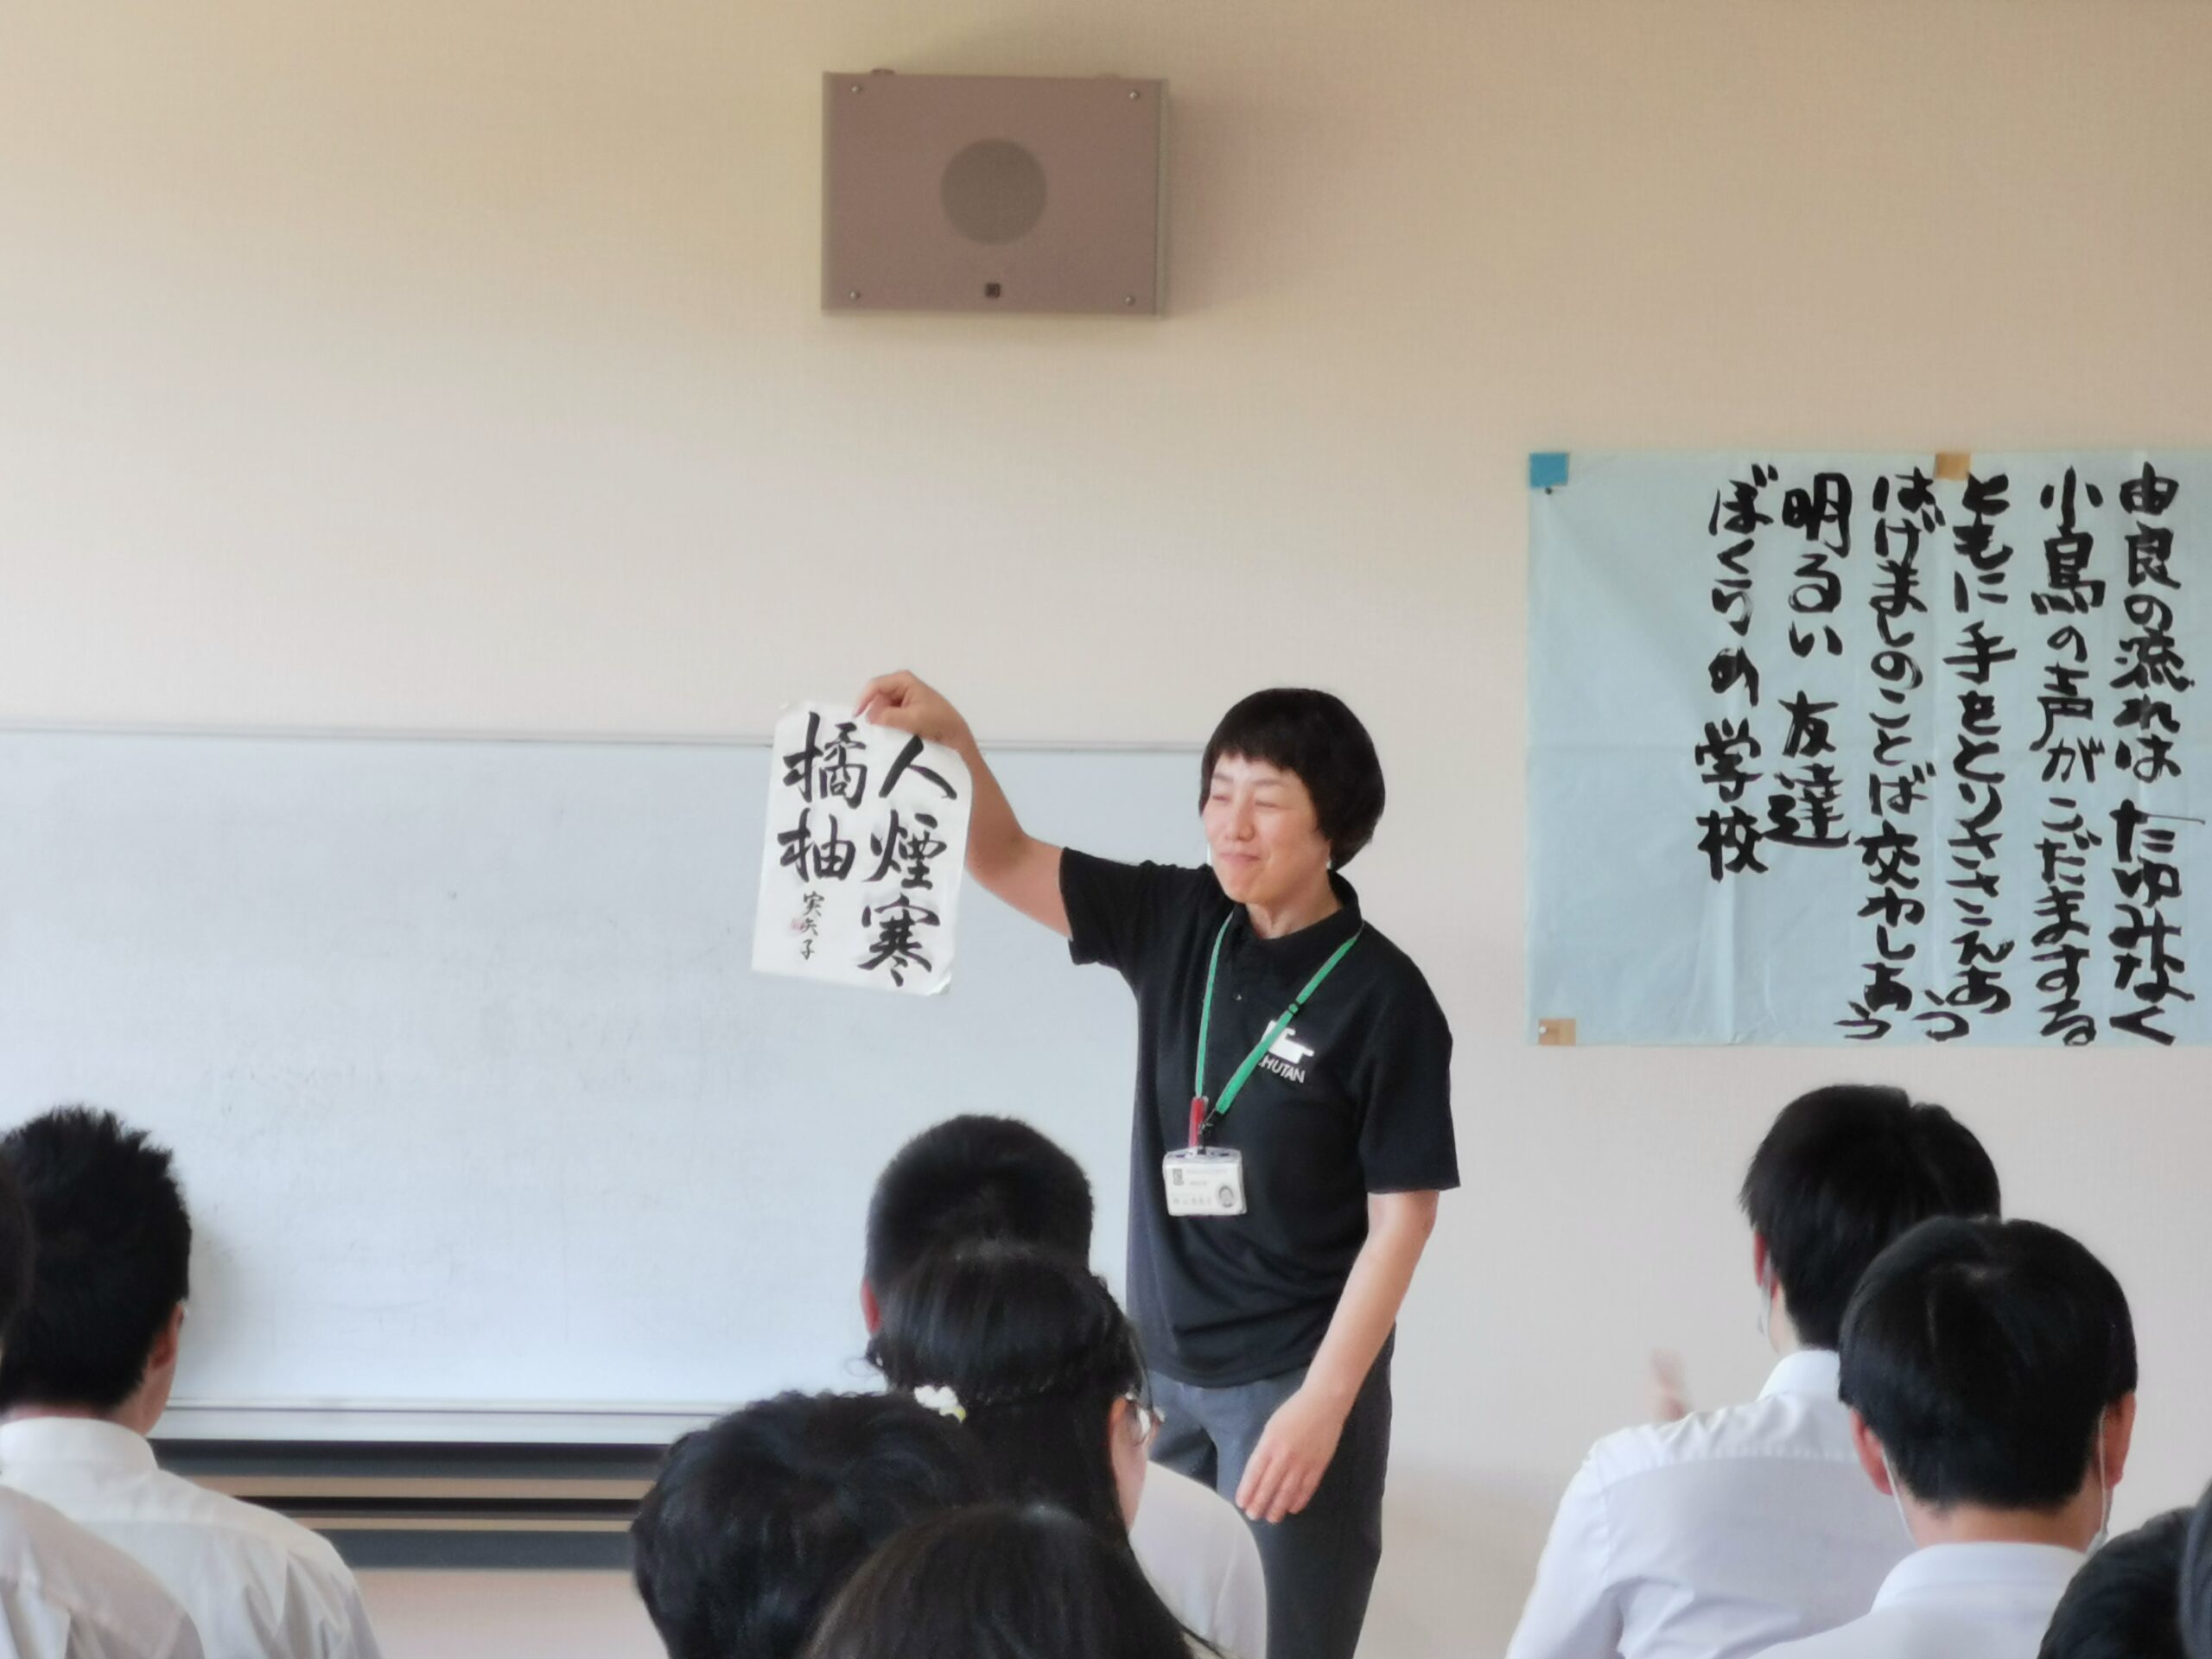 人煙寒
橘柚
由良の流れは たゆみなく
小鳥の声が こだまする
ともに手をとりささえあう
はげましのことば交わしあう
明るい 友達
ぼくらの学校
CHUTAN